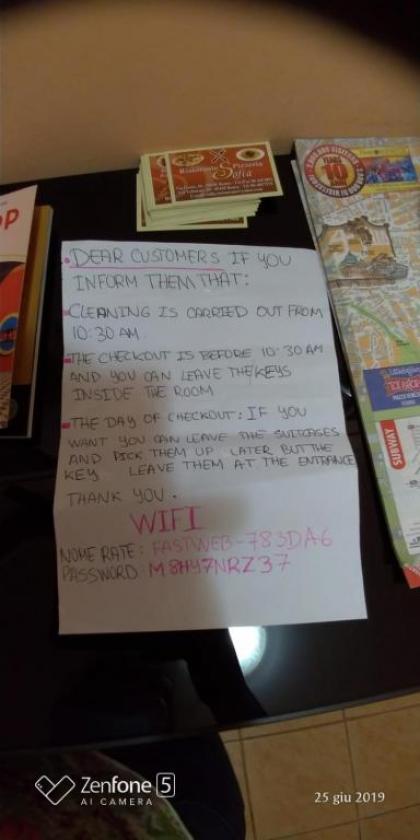 Ristorante Pizzeria
Sofia
DEAR CUSTOMERS IF YOU
INFORM THEM THAT:
CLEANING IS CARRIED OUT FROM
10:30 AM.
THE CHECKOUT IS BEFORE 10:30 AM
AND YOU CAN LEAVE THE KEYS
INSIDE THE ROOM
THE DAY OF CHECKOUT: IF YOU
WANT YOU CAN LEAVE THE SUITCASES
AND PICK THEM UP LATER BUT THE
KEY LEAVE THEM AT THE ENTRANCE
THANK YOU.
WIFI
NOME RATE: FASTWEB-783DA6
PASSWORD: M8HY7NRZ37
YEARS
10
SUBWAY
Zenfone 5
AI CAMERA
25 giu 2019